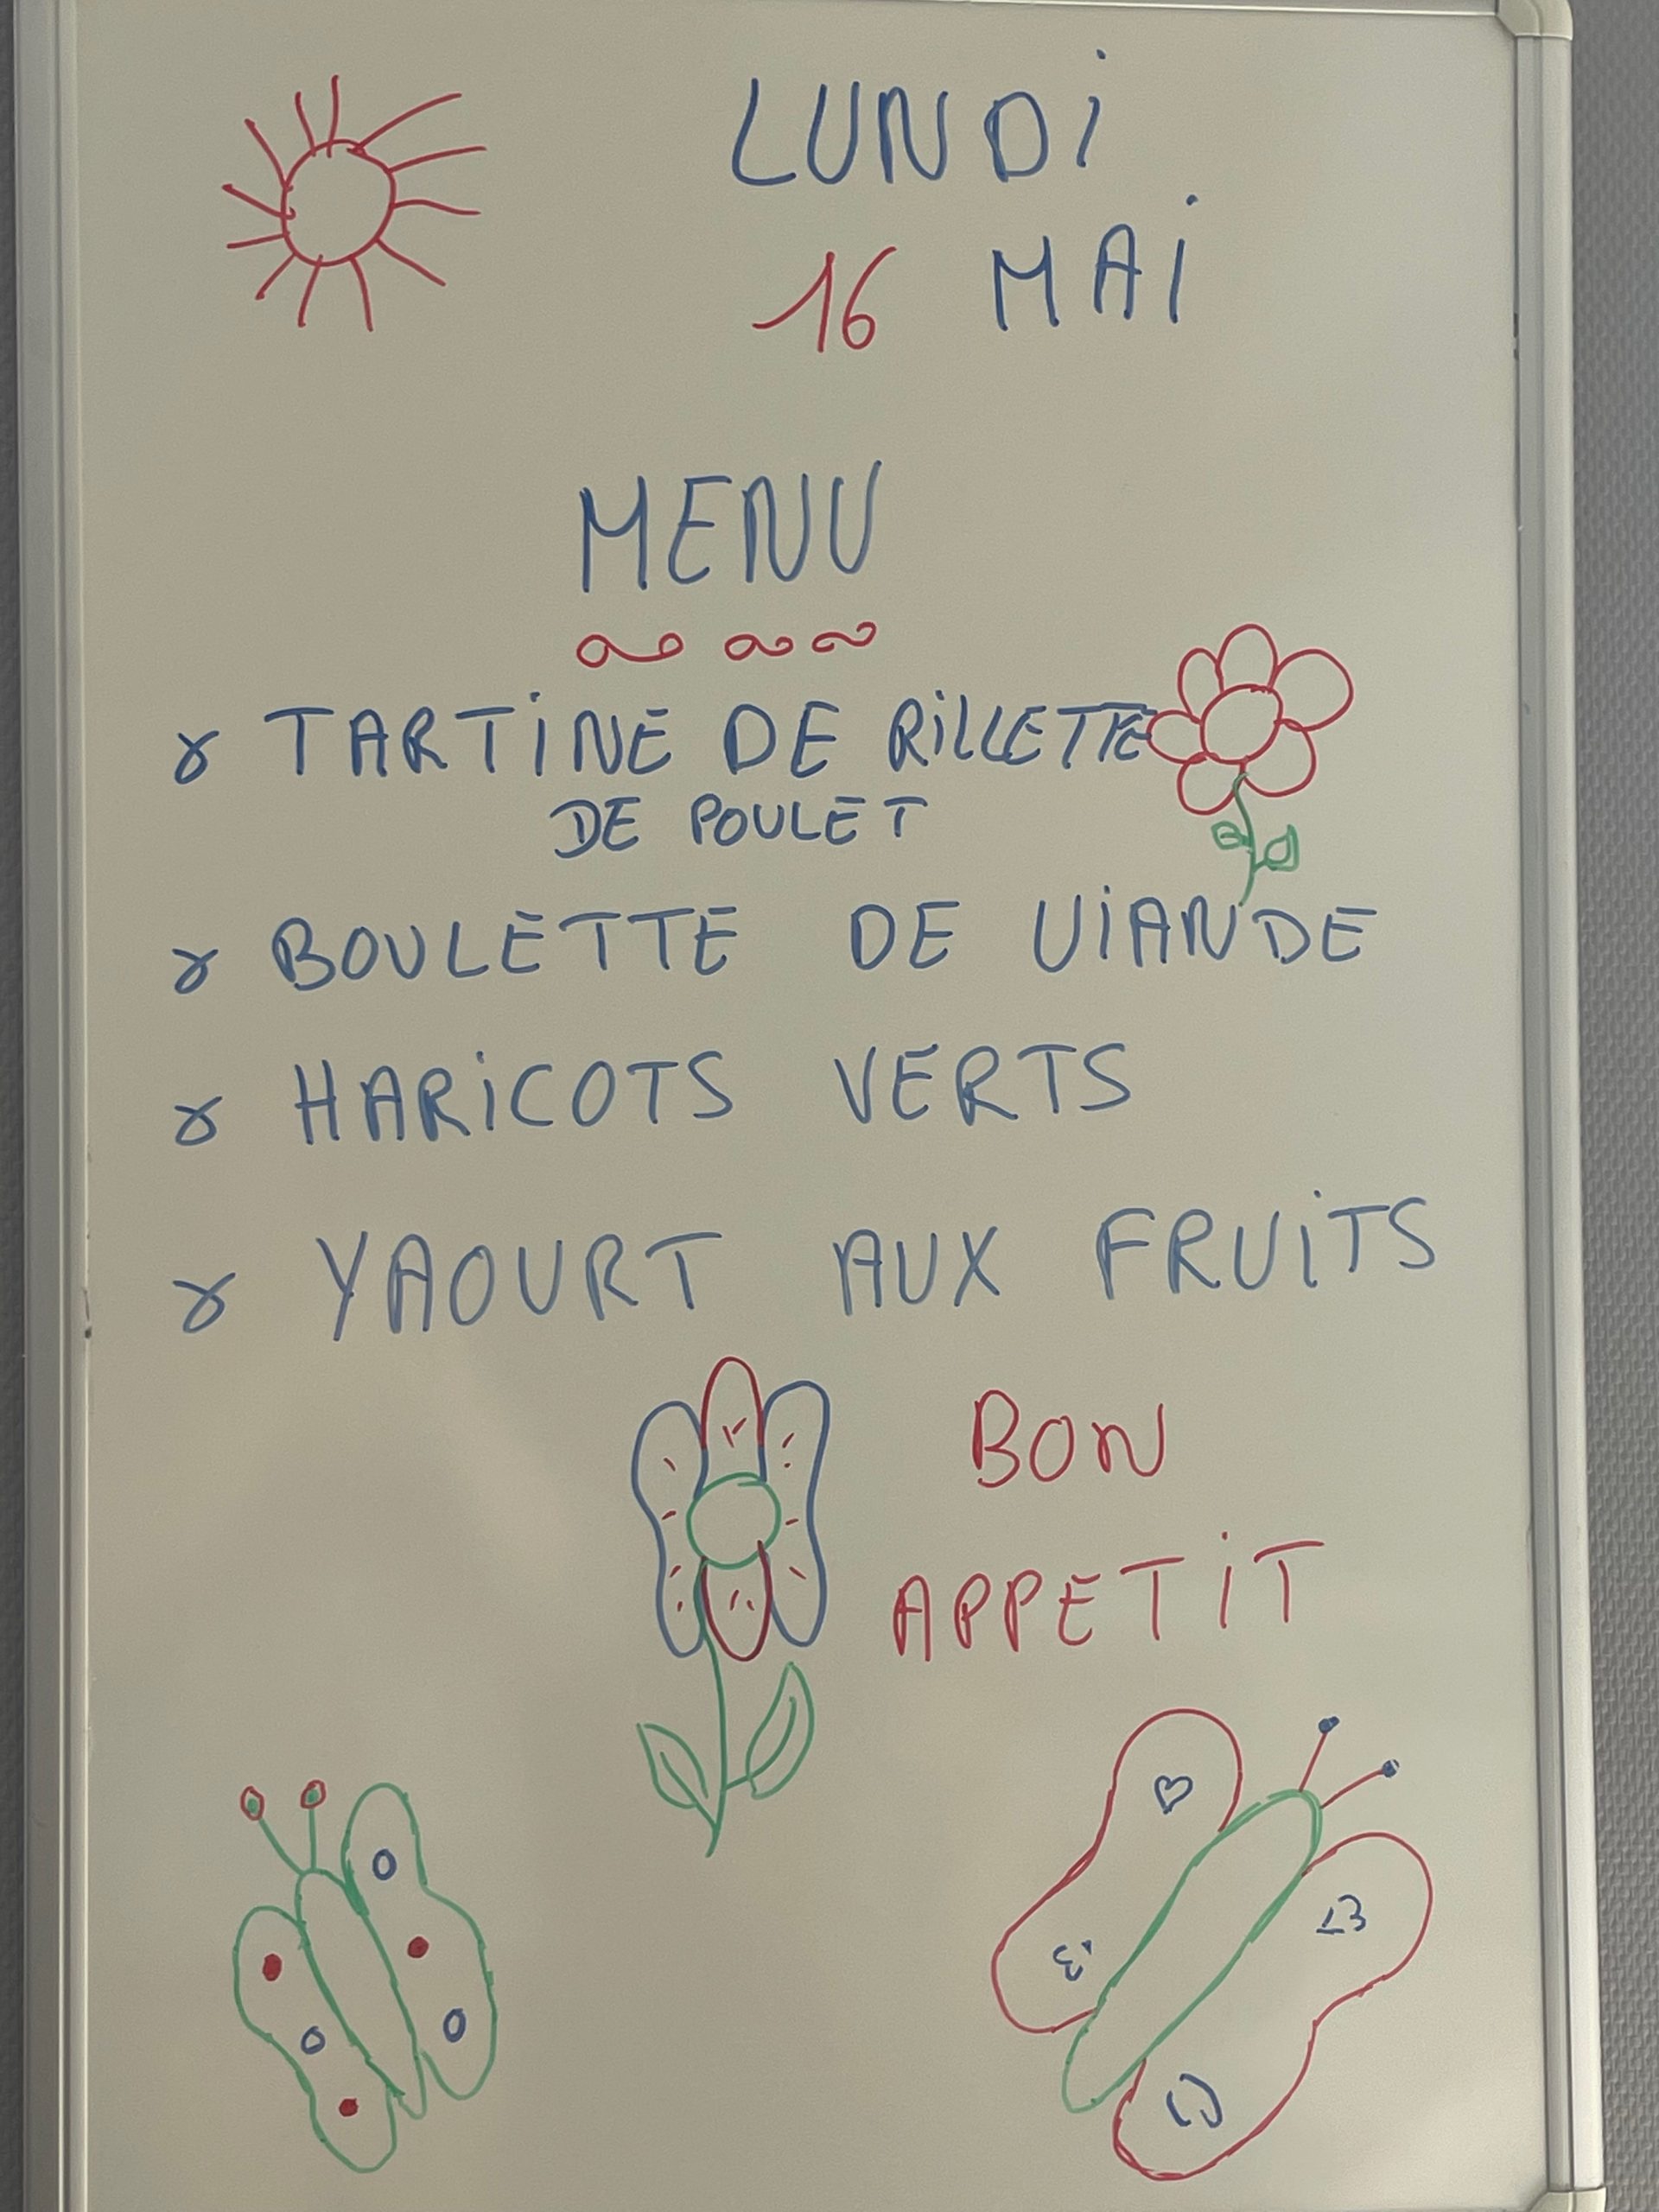 LUNDi
16 MAi
MENU
TARTiNE DE RiLLETTE
DE POULET
BOULETTE DE ViANDE
HARiCOTS VERTS
YAOURT AUX FRUiTS
BON
APPETiT